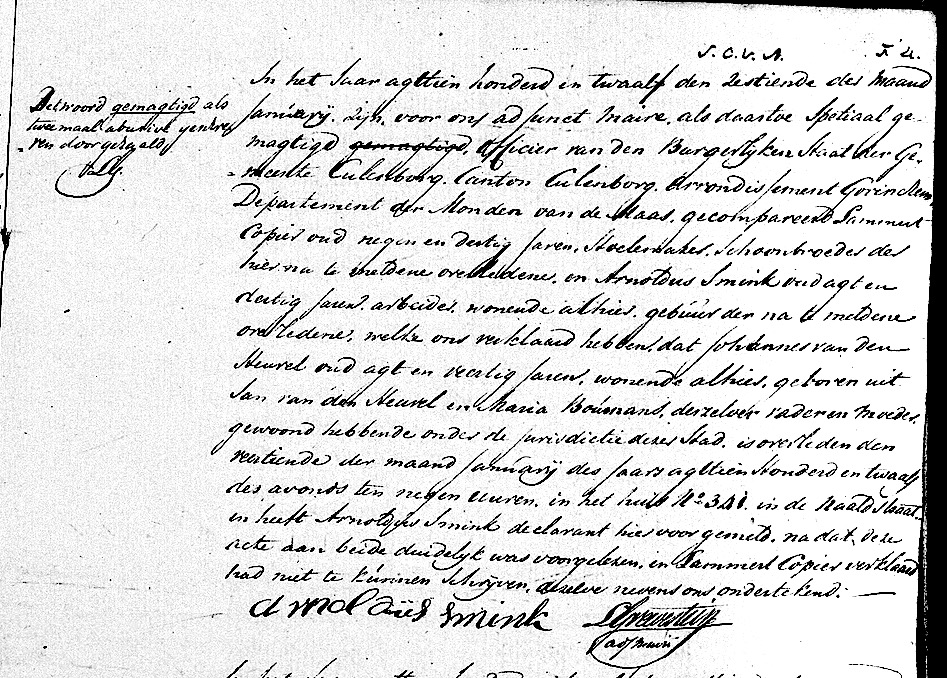 F 4.
Het woord gemagtigd als
twee maal abusive geschre
ven doorgehaald
In het Jaar agttien honderd en twaalf den zestiende der maand
Januarij, zijn, voor ons adjunct Maire, als daartoe Spetiaal ge-
magtigd gemagtigd, Officier van den Burgerlyken Staat der Ge-
meente Culenborg, Canton Culenborg, Arrondissement Gorinchem,
Département der Monden van de Maas, gecompareerd Lammert
Copier oud negen en dertig Jaren, Stoelemaker, Schoonbroeder des
hier na te meldene overledene, en Arnoldus Smink oud agt en
dertig Jaren, arbeider, wonende alhier, gebuur der na te meldene
overledene, welke ons verklaard hebben, dat Johannes van den
Heuvel oud agt en veertig Jaren, wonende alhier, geboren uit
Jan van den Heuvel en Maria Bousnans, deszelver vader en moeder,
gewoond hebbende onder de jurisdictie dezer Stad, is overleden den
veertiende der maand Januarij des Jaars agttien Honderd en twaalf
des avonds ten negen euuren, in het huis No 341. in de Naald Straat.
en heeft Arnoldus Smink declarant hier voor gemeld, na dat deze
acte aan beide duidelyk was voorgelezen, en Lammert Copier verklaard
had niet te kunnen Schryven, dezelve nevens ons ondertekend.
Arnoldus Smink
adj maire